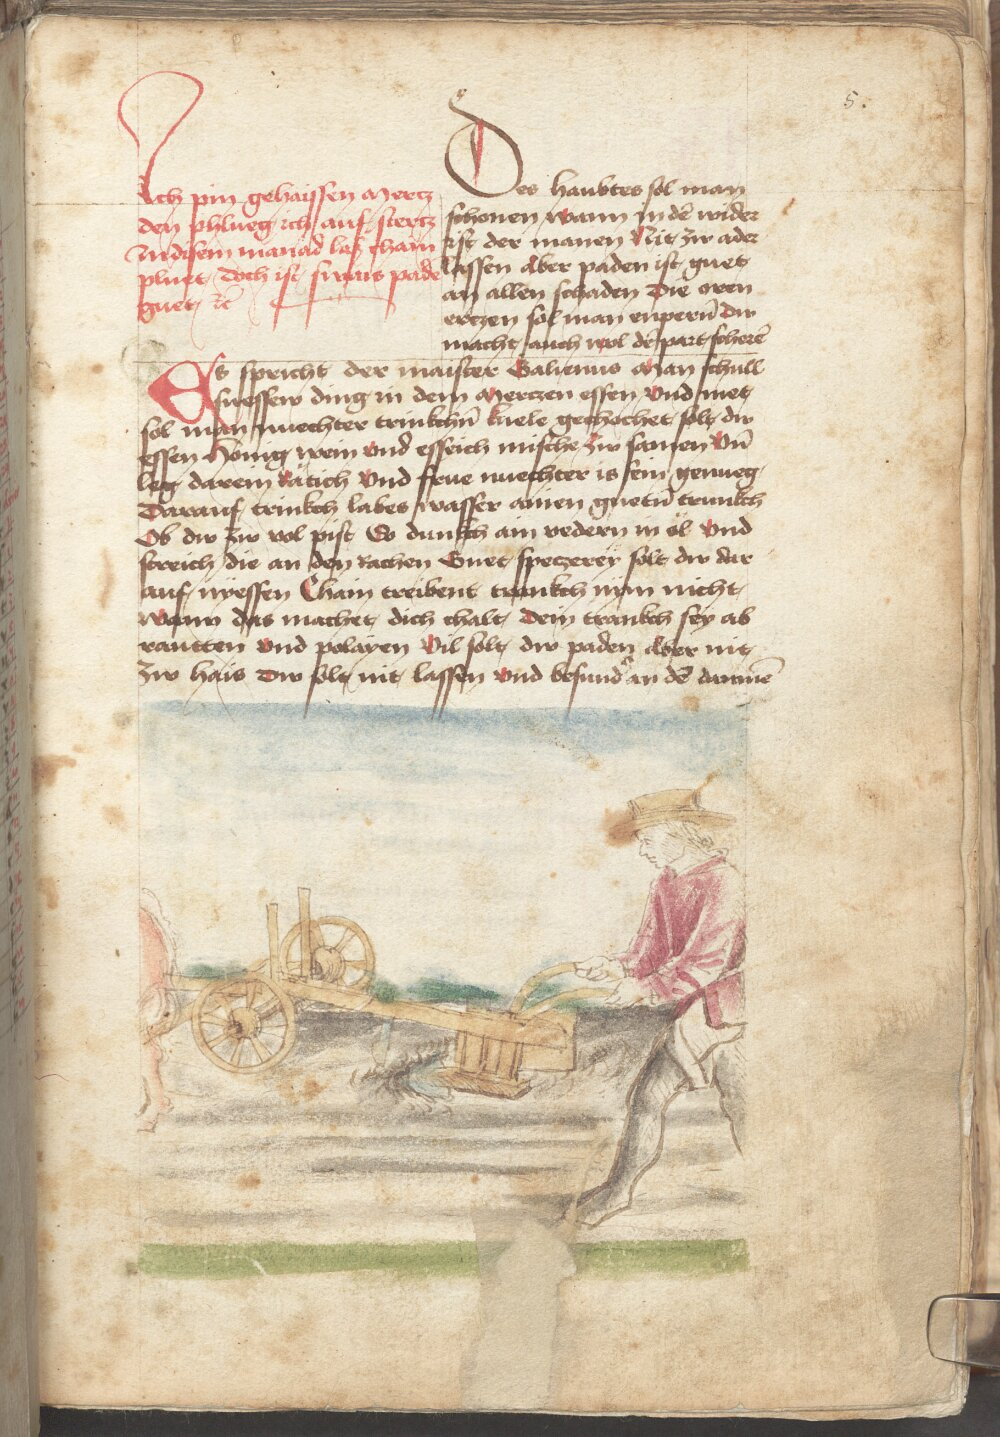 5.
Ich pin gehaissen Mertz
den phlueg ich auf stertz
In disem manad las chain
pluet Doch ist swais pade
guet etc
Des haubtes sol man
schonen wann in dē wider
ist der manen Nit zw ader
lassen Aber paden ist guet
an allen schaden Die oren
ertzen sol man enpern̄ Dw
macht auch wol dē part scherē
Es spricht der maister Galienus Man schull
suessew ding in dem Mertzen essen Vnd met
sol man nuechter trinkchn̄ kaele gechochet solt dw
essen Honig wein vnd esseich mische zw samen Vn̄
leg darein Rätich Vnd frue nuechter is sein genueg
Darauf trinkch labes wasser ainen guetn̄ trunkch
Ob dw zw vol pist So dunkch ain vedern in öl Vnd
streich die an den Rachen Guet speczerey solt dw dar
auf nyessen Chain treibent trankch nym nicht
wann das machet dich chalt Dein trankch sey ab
rautten Vnd polayen Vil solt dw paden Aber nit
zw hais Dw solt nit lassen Vnd besund' an dē daumē